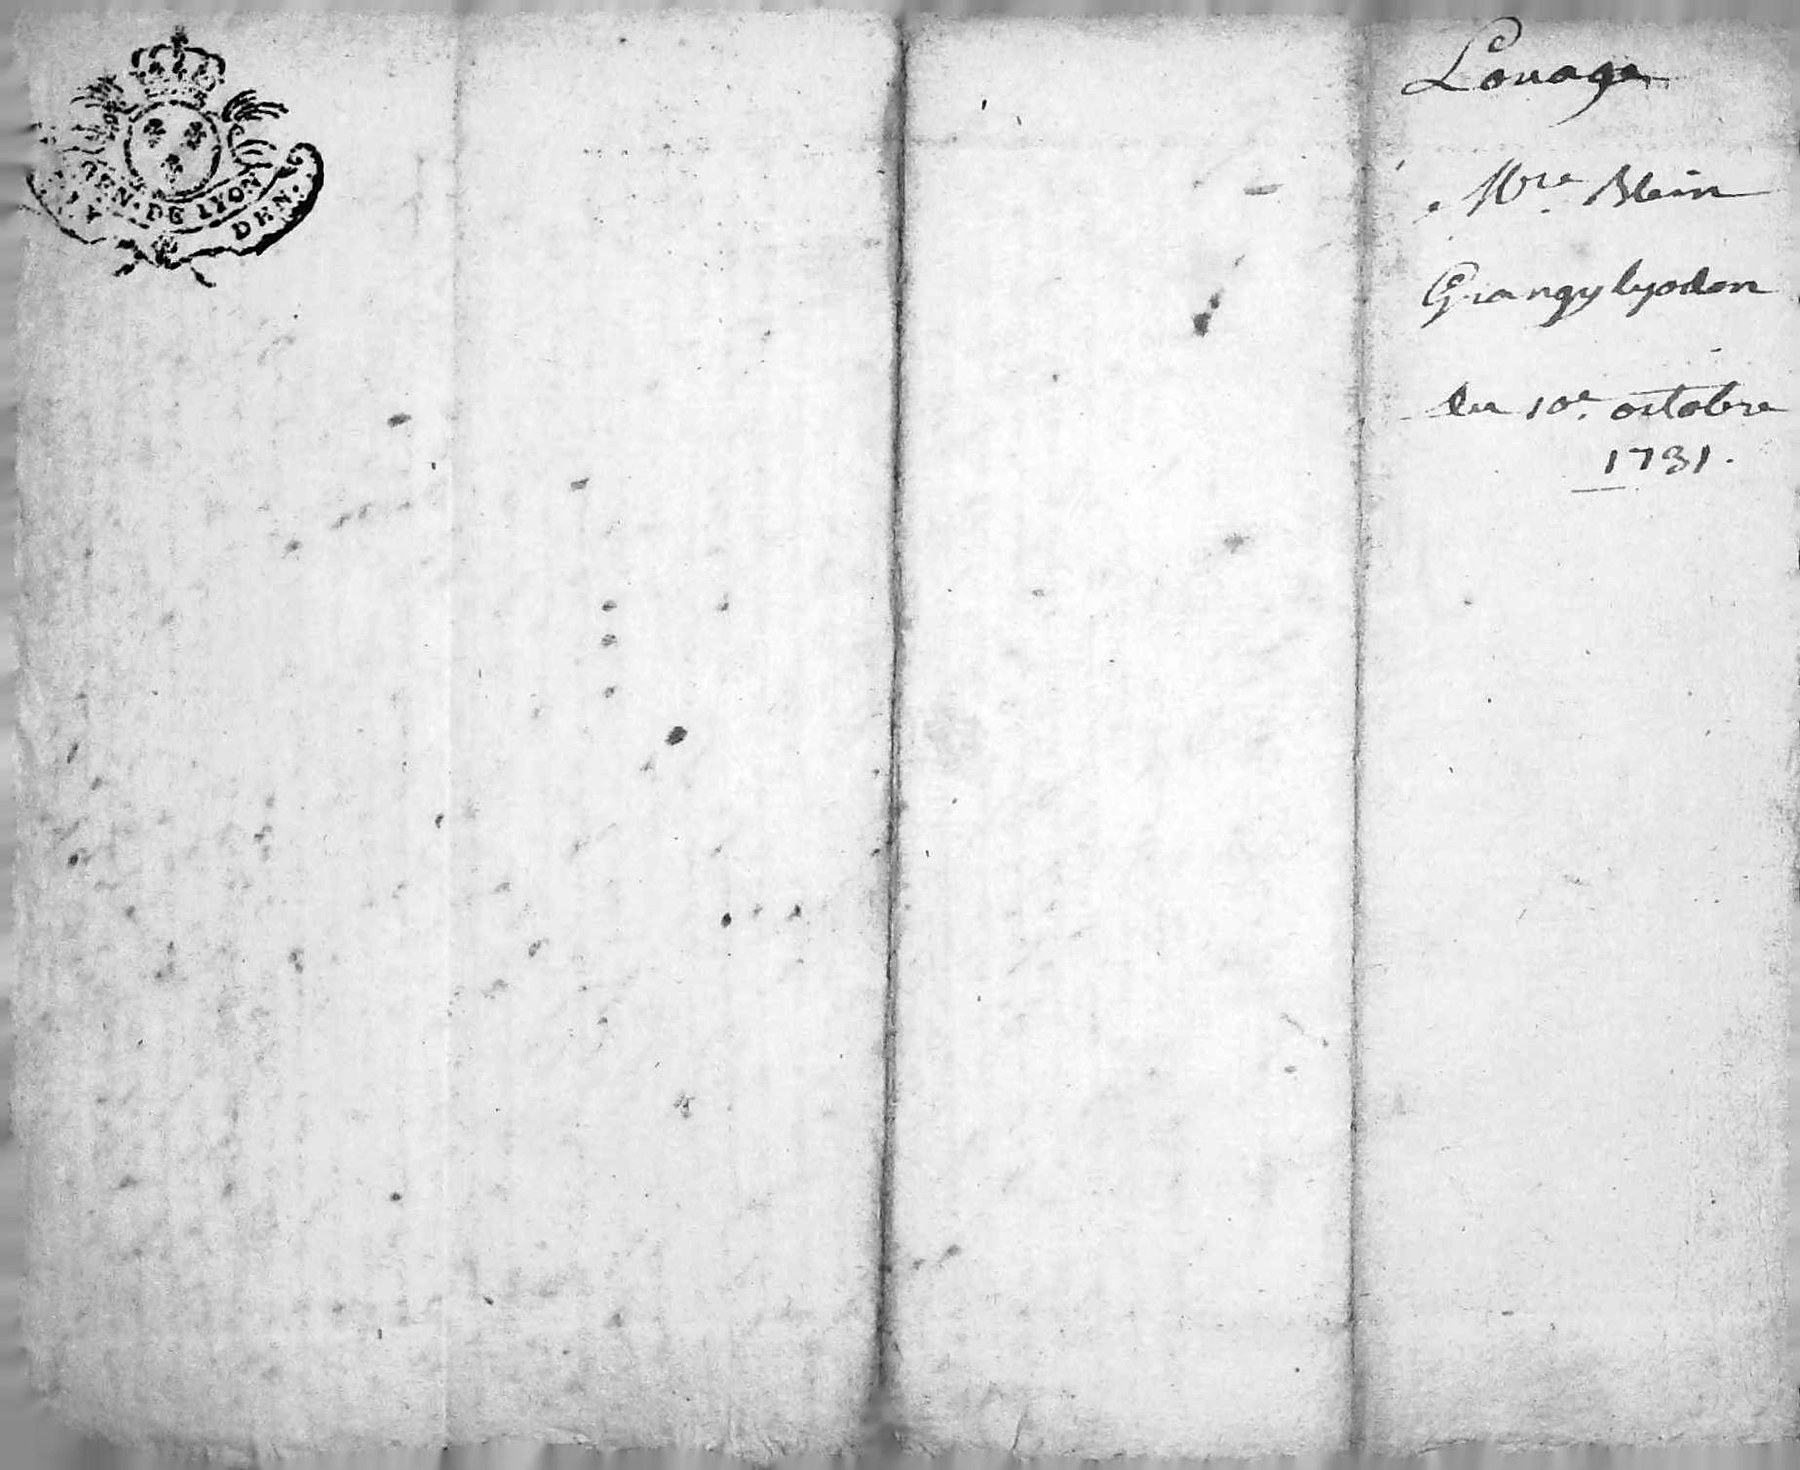 GEN. DE LYON
DEN.
Louage
Mre Blein
Grangy lyodon
du 10e. octobre
1731.